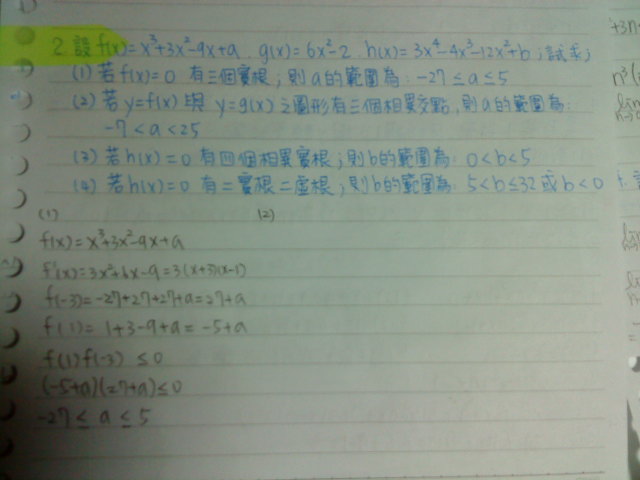 2. 設 f(x)=x³+3x²-9x+a, g(x)=6x²-2, h(x)=3x⁴-4x³-12x²+b;試求;
(1) 若 f(x)=0 有三個實根;則 a 的範圍為: -27≤a≤5
(2) 若 y=f(x) 與 y=g(x) 之圖形有三個相異交點,則 a 的範圍為:
-7<a<25
(3) 若 h(x)=0 有四個相異實根;則 b 的範圍為: 0<b<5
(4) 若 h(x)=0 有二實根二虛根;則 b 的範圍為: 5<b≤32 或 b<0
(1) (2)
f(x)=x³+3x²-9x+a
f'(x)=3x²+6x-9=3(x+3)(x-1)
f(-3)=-27+27+27+a=27+a
f(1)=1+3-9+a=-5+a
f(1)f(-3)≤0
(-5+a)(27+a)≤0
-27≤a≤5